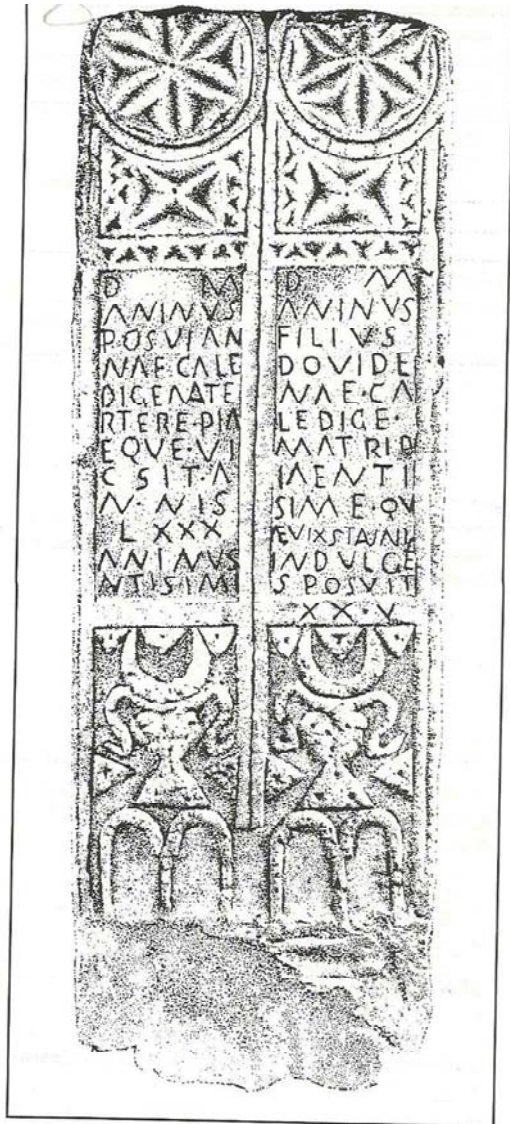 D M
ANINVS
POSVI AN
NAE CALE
DIGE MATE
RTERE·PIA
EQVE·VI
CSIT·A
N·NIS
LXXX
ANINVS
NTISIMI
D M
ANINVS
FILIVS
DOVIDE
NAE·CA
LEDIGE·
MATRI P
IAENTI
SIME·QV
EVIXSTANIS
INDVLGE
S POSVIT
XX·V